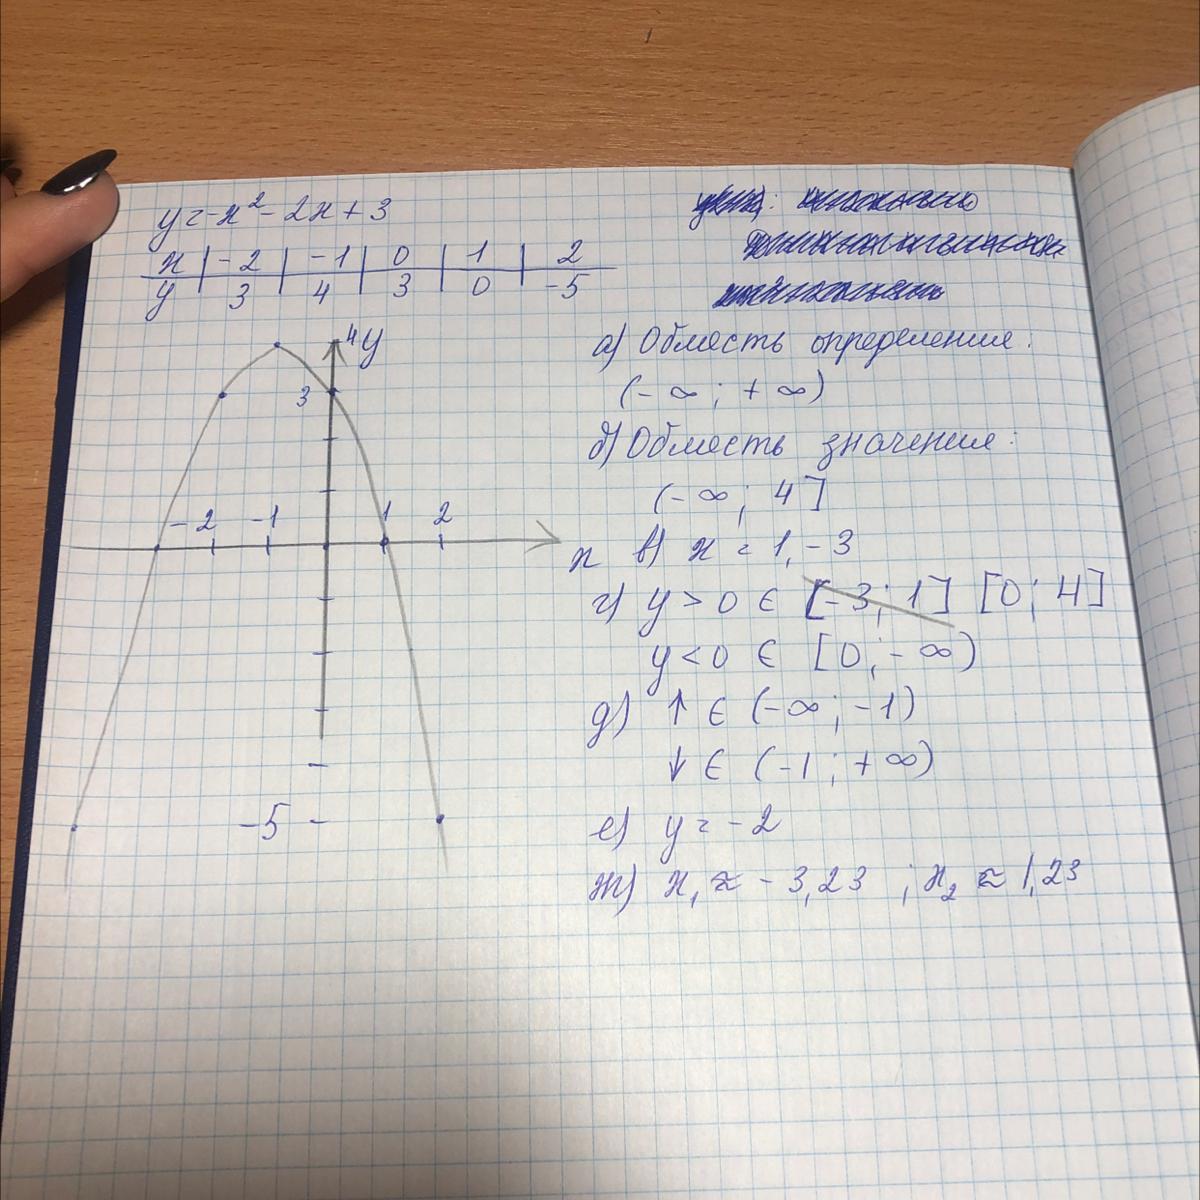 y = -x² - 2x + 3
x | -2 | -1 | 0 | 1 | 2
y | 3 | 4 | 3 | 0 | -5
4 y
3
-2 -1 1 2
x
-5
а) Область определения:
(-∞; +∞)
б) Область значения:
(-∞; 4]
в) x = 1, -3
г) y > 0 ∈ [-3; 1] [0; 4]
y < 0 ∈ [0; -∞)
д) ↑ ∈ (-∞; -1)
↓ ∈ (-1; +∞)
е) y = -2
ж) x₁ ≈ -3,23 ; x₂ ≈ 1,23